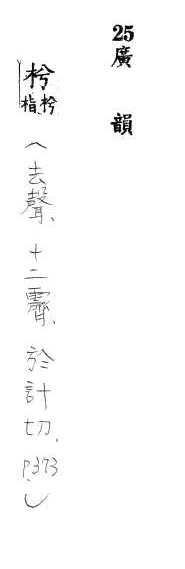 25廣韻
枍枍指
（去聲、十二霽、於計切、P.373）